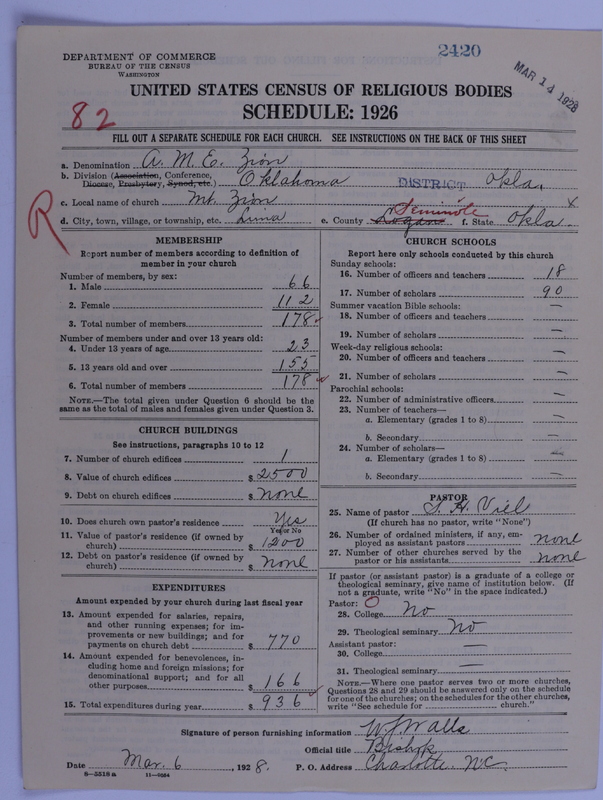 DEPARTMENT OF COMMERCE
BUREAU OF THE CENSUS
WASHINGTON
2420
MAR 14 1928
UNITED STATES CENSUS OF RELIGIOUS BODIES
SCHEDULE: 1926
82
FILL OUT A SEPARATE SCHEDULE FOR EACH CHURCH. SEE INSTRUCTIONS ON THE BACK OF THIS SHEET
a. Denomination A. M. E. Zion
b. Division (Association, Conference, Diocese, Presbytery, Synod, etc.) Oklahoma DISTRICT Okla.
c. Local name of church Mt. Zion x
R
d. City, town, village, or township, etc. Lima e. County Logan Seminole f. State Okla.
MEMBERSHIP
Report number of members according to definition of
member in your church
Number of members, by sex:
1. Male 66
2. Female 112
3. Total number of members 178
Number of members under and over 13 years old:
4. Under 13 years of age 23
5. 13 years old and over 155
6. Total number of members 178
NOTE.—The total given under Question 6 should be
same as the total of males and females given under Question 3.
CHURCH BUILDINGS
See instructions, paragraphs 10 to 12
7. Number of church edifices 1
8. Value of church edifices $ 2500
9. Debt on church edifices $ none
10. Does church own pastor's residence Yes
Yes or No
11. Value of pastor's residence (if owned by
church) $ 1200
12. Debt on pastor's residence (if owned by
church) $ none
EXPENDITURES
Amount expended by your church during last fiscal year
13. Amount expended for salaries, repairs,
and other running expenses; for im-
provements or new buildings; and for
payments on church debt $ 770
14. Amount expended for benevolences, in-
cluding home and foreign missions; for
denominational support; and for all
other purposes $ 166
15. Total expenditures during year $ 936
CHURCH SCHOOLS
Report here only schools conducted by this church
Sunday schools:
16. Number of officers and teachers 18
17. Number of scholars 90
Summer vacation Bible schools:
18. Number of officers and teachers —
19. Number of scholars —
Week-day religious schools:
20. Number of officers and teachers —
21. Number of scholars —
Parochial schools:
22. Number of administrative officers —
23. Number of teachers—
a. Elementary (grades 1 to 8) —
b. Secondary —
24. Number of scholars—
a. Elementary (grades 1 to 8) —
b. Secondary —
PASTOR
25. Name of pastor S. H. Viel
(If church has no pastor, write "None")
26. Number of ordained ministers, if any, em-
ployed as assistant pastors none
27. Number of other churches served by the
pastor or his assistants none
If pastor (or assistant pastor) is a graduate of a college or
theological seminary, give name of institution below. (If
not a graduate, write "No" in the space indicated.)
Pastor: O
28. College No
29. Theological seminary No
Assistant pastor:
30. College —
31. Theological seminary —
NOTE.—Where one pastor serves two or more churches,
Questions 28 and 29 should be answered only on the schedule
for one of the churches; on the schedules for the other churches,
write "See schedule for church."
Signature of person furnishing information W. J. Walls
Official title Bishop
Date Mar. 6, 1928. P. O. Address Charlotte, N.C.
8—5518 a 11—9054